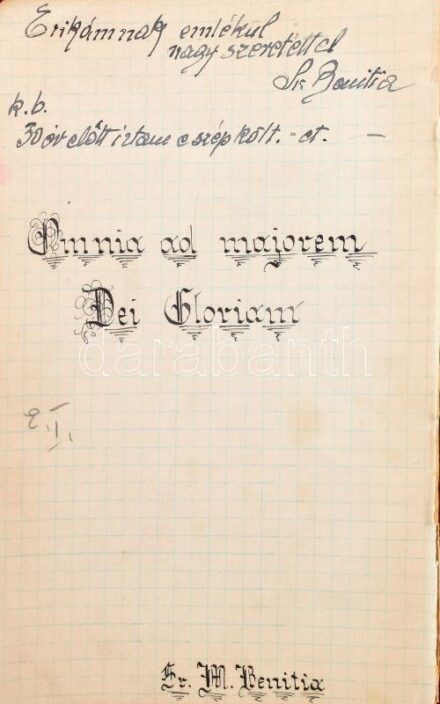 Erikámnak emlékül
nagy szeretettel
Sr Benitia
k.b.
30 év előtt irtam e szép költ.-et. —
Omnia ad majorem
Dei Gloriam
darabanth
Sr. M. Benitia